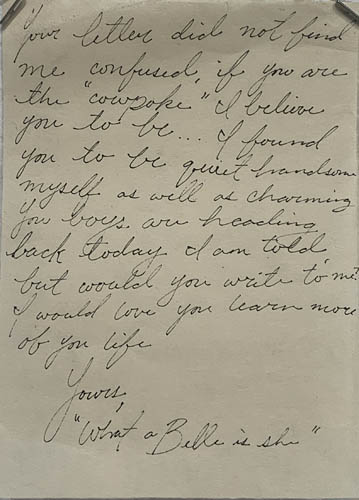 Your letter did not find
me confused, if you are
the "cowpoke" I believe
you to be... I found
you to be quiet handsome
myself as well as charming
You boys are heading
back today I am told
but would you write to me?
I would love you learn more
of you life
Yours,
"What a Belle is she"